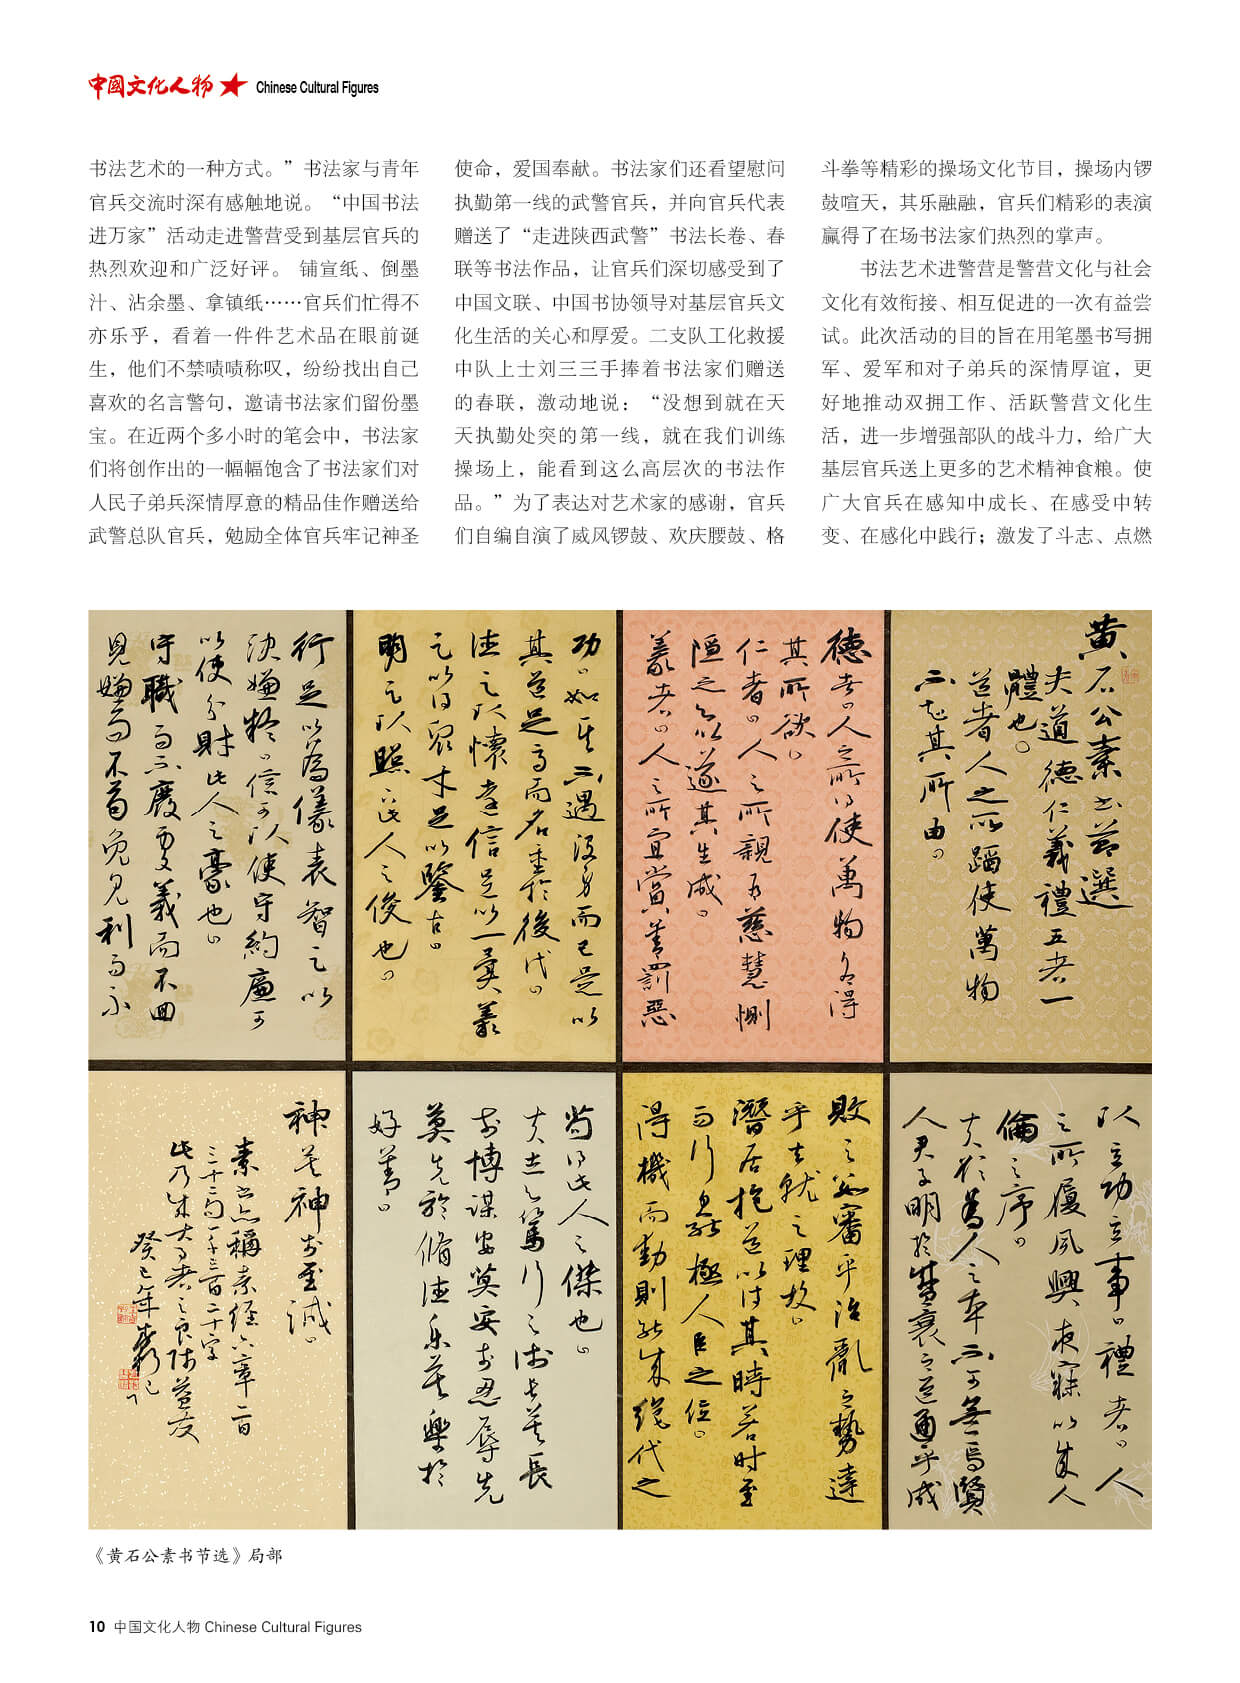 中國文化人物 Chinese Cultural Figures
书法艺术的一种方式。”书法家与青年
官兵交流时深有感触地说。“中国书法
进万家”活动走进警营受到基层官兵的
热烈欢迎和广泛好评。 铺宣纸、倒墨
汁、沾余墨、拿镇纸……官兵们忙得不
亦乐乎，看着一件件艺术品在眼前诞
生，他们不禁啧啧称叹，纷纷找出自己
喜欢的名言警句，邀请书法家们留份墨
宝。在近两个多小时的笔会中，书法家
们将创作出的一幅幅饱含了书法家们对
人民子弟兵深情厚意的精品佳作赠送给
武警总队官兵，勉励全体官兵牢记神圣
使命，爱国奉献。书法家们还看望慰问
执勤第一线的武警官兵，并向官兵代表
赠送了“走进陕西武警”书法长卷、春
联等书法作品，让官兵们深切感受到了
中国文联、中国书协领导对基层官兵文
化生活的关心和厚爱。二支队工化救援
中队上士刘三三手捧着书法家们赠送
的春联，激动地说：“没想到就在天
天执勤处突的第一线，就在我们训练
操场上，能看到这么高层次的书法作
品。”为了表达对艺术家的感谢，官兵
们自编自演了威风锣鼓、欢庆腰鼓、格
斗拳等精彩的操场文化节目，操场内锣
鼓喧天，其乐融融，官兵们精彩的表演
赢得了在场书法家们热烈的掌声。
书法艺术进警营是警营文化与社会
文化有效衔接、相互促进的一次有益尝
试。此次活动的目的旨在用笔墨书写拥
军、爱军和对子弟兵的深情厚谊，更
好地推动双拥工作、活跃警营文化生
活，进一步增强部队的战斗力，给广大
基层官兵送上更多的艺术精神食粮。使
广大官兵在感知中成长、在感受中转
变、在感化中践行；激发了斗志、点燃
黄石公素书节選
夫道德仁義禮五者一
體也。
道者人之所蹈使萬物
不知其所由。
德者人之所得使萬物各得
其所欲。
仁者人之所親有慈慧惻
隱之心以遂其生成。
義者人之所宜賞善罰惡
以立功立事。禮者人
之所履夙興夜寐以成人
倫之序。
夫欲為人之本不可無一焉賢
人君子明於盛衰之道通乎成
敗之數審乎治亂之勢達
乎去就之理故
潛居抱道以待其時若時至
而行則能極人臣之位。
得機而動則能成絕代之
功。如其不遇沒身而已是以
其道足高而名重於後代。
德足以懷遠信足以一異義
足以得眾才足以鑒古。
明足以照下此人之俊也。
行足以為儀表智足以
決嫌疑信可以使守約廉可
以使分財此人之豪也。
守職而不廢處義而不回
見嫌而不苟免見利而不
苟得此人之傑也。
夫志心篤行之術長莫長
於博謀安莫安於忍辱先
莫先於脩德樂莫樂於
好善。
神莫神於至誠。
素書亦稱素經六章一百
三十三句一千三百二十字
此乃成大事者之良师益友
癸巳年
《黄石公素书节选》局部
10 中国文化人物 Chinese Cultural Figures